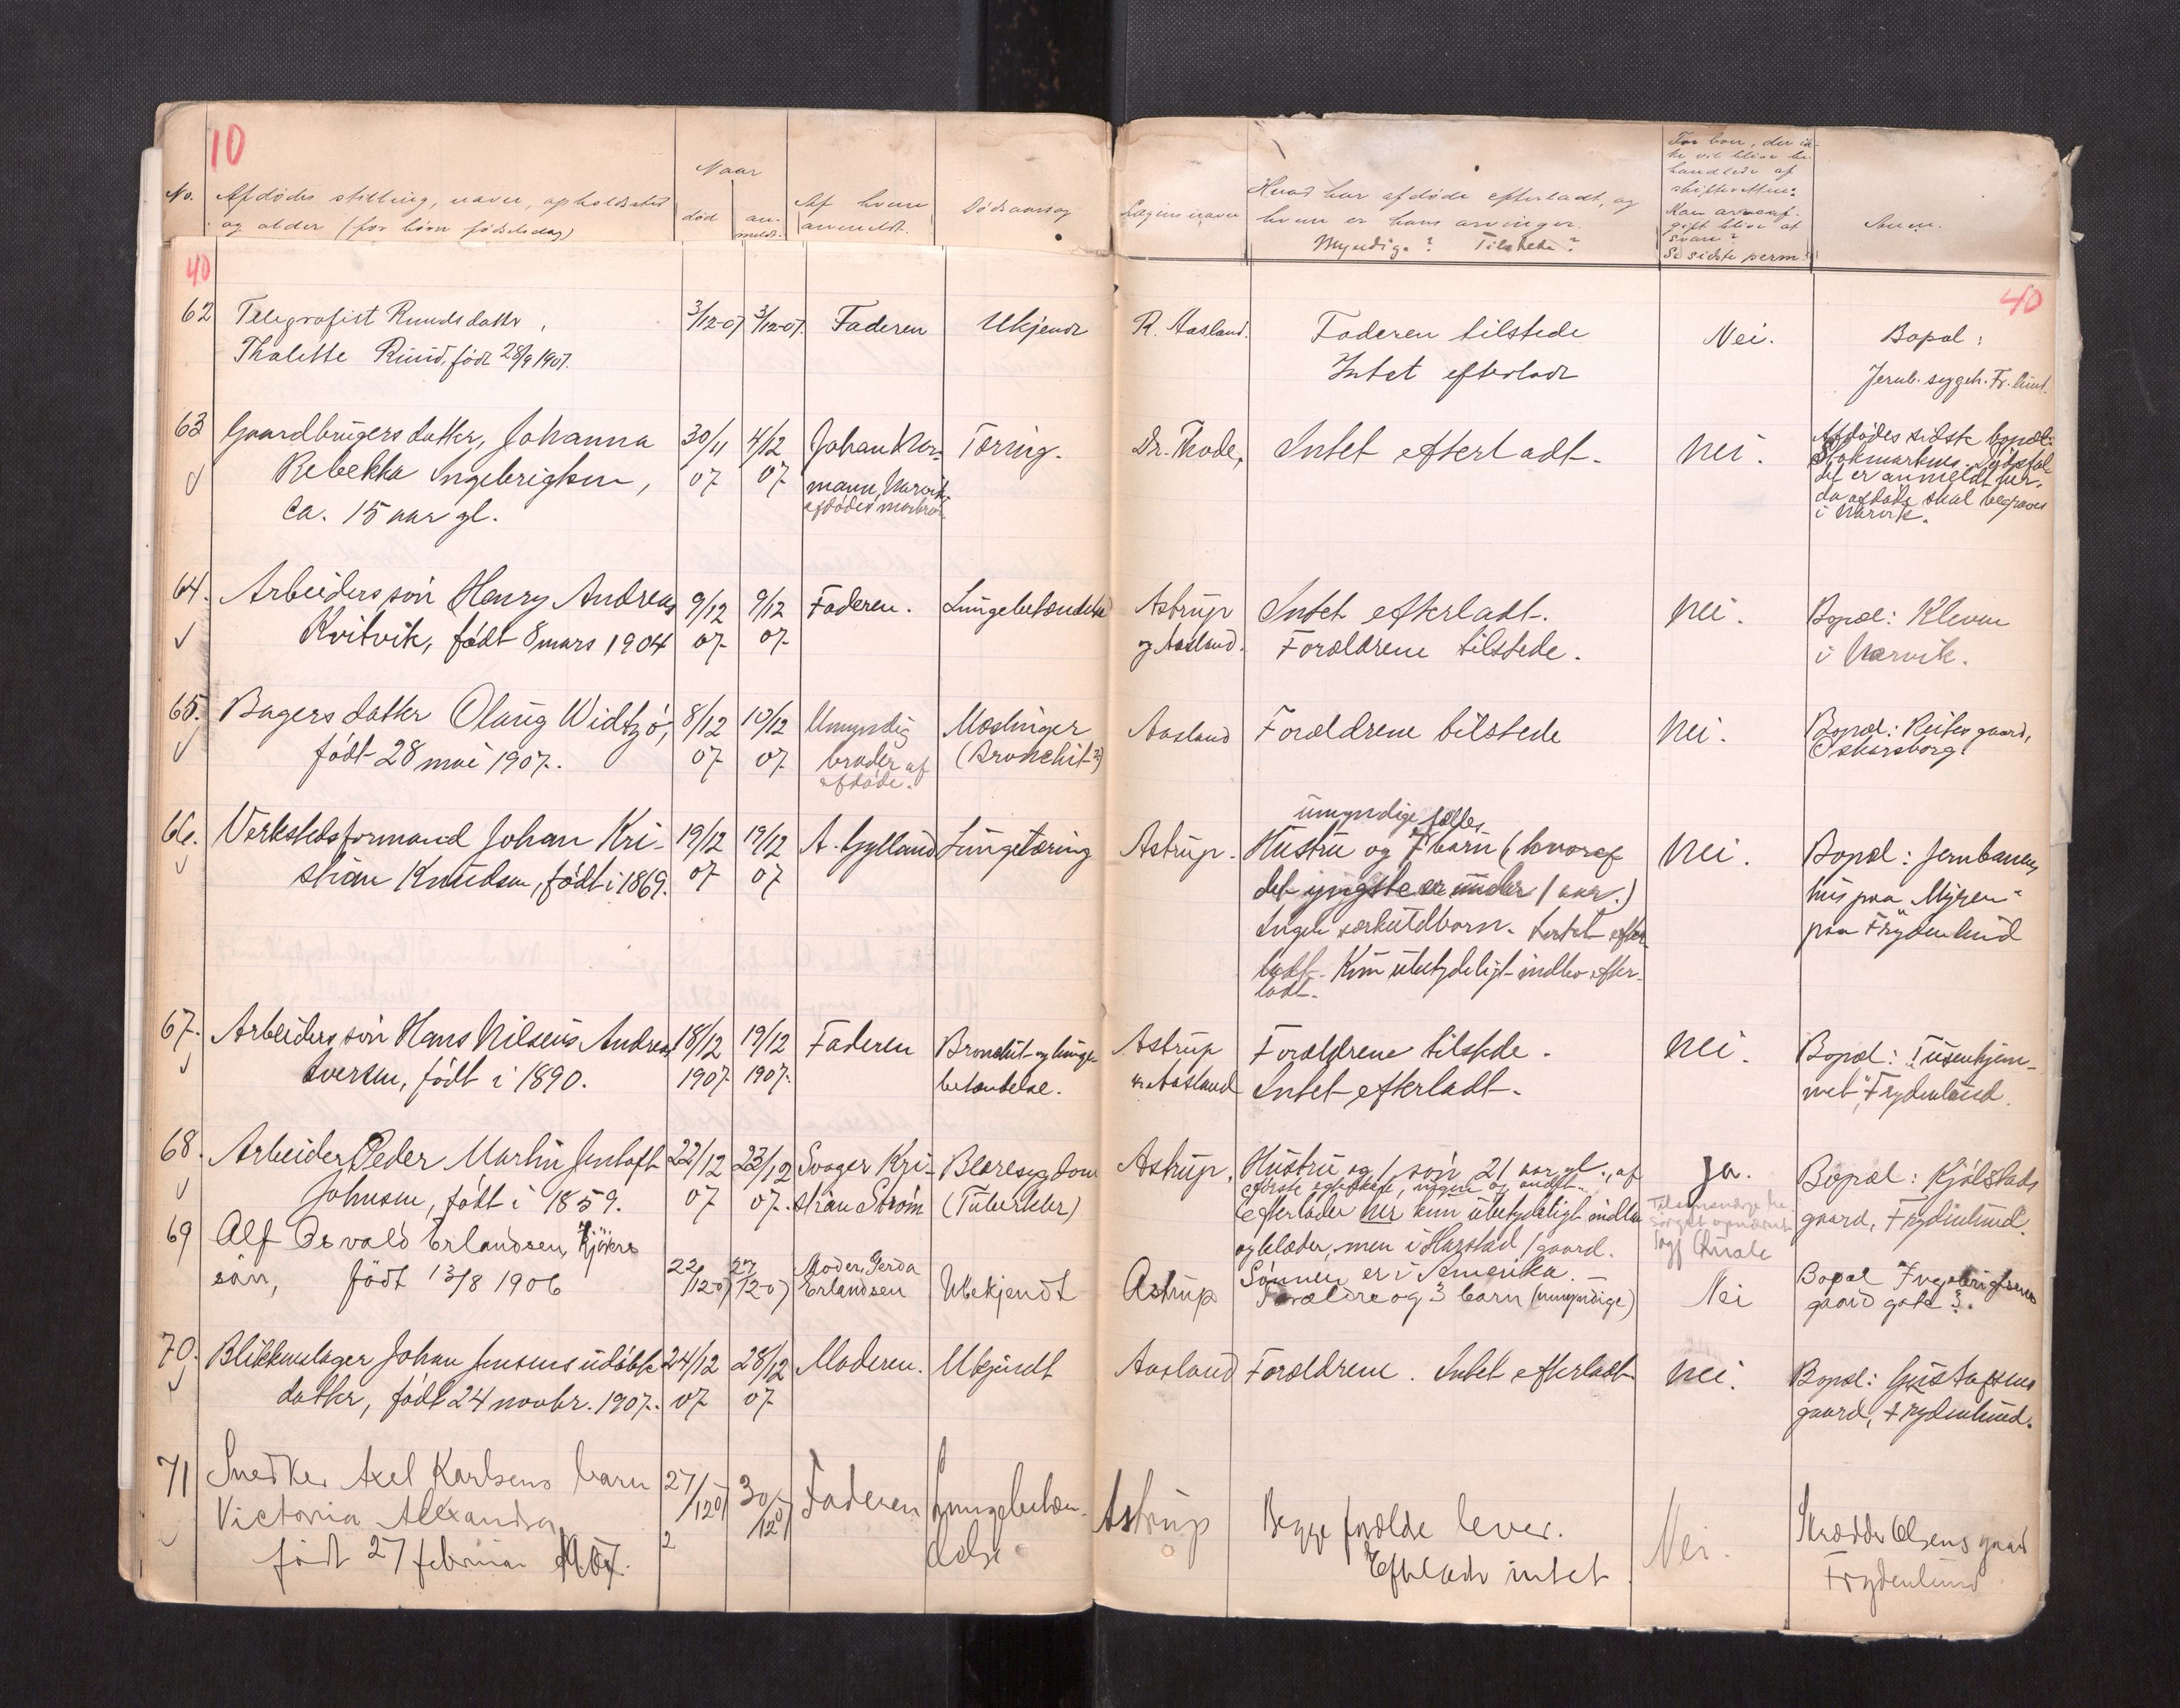 10
No.
Afdødes stilling, navn, opholdssted
og alder (for børn fødselsdag)
Naar
død
an-
meldt.
Af hvem
anmeldt.
Dødsaarsag
Lægens navn
Hvad har afdøde efterladt, og
hvem er hans arvinger.
Myndige? Tilstede?
For boer, der ik-
ke vil blive be-
handlede af
skifteretten:
Kan arveaf-
gift blive at
svare?
Se sidste perm.
Anm.
40
40
62
Telegrafist Runds datter,
Thalette Rund, født 28/9 1907.
3/12-07
3/12-07.
Faderen
Ukjendt
R. Aasland.
Faderen tilstede
Intet efterladt
Nei.
Bopæl:
Jernb. sygeh. Fr.lund.
63
Gaardbrugers datter, Johanna
Rebekka Ingebrigtsen,
ca. 15 aar gl.
30/11
07
4/12
07
Johan Nor-
mann, Narvik,
afdødes morbror.
Tæring.
Dr. Thode,
Intet efterladt.
Nei.
Afdødes sidste bopæl:
Stokmarknes. Dødsfal-
det er anmeldt her,
da afdøde skal begraves
i Narvik.
64.
Arbeiders søn Henry Andreas
Kvitvik, født 8 mars 1904
9/12
07
9/12
07
Faderen.
Lungebetændelse
Astrup
og Aasland.
Intet efterladt.
Forældrene tilstede.
Nei.
Bopæl: Kleven
i Narvik.
65.
Bagers datter Olaug Widtzø,
født 28 mai 1907.
8/12
07
10/12
07
Umyndig
broder af
afdøde.
Meslinger
(Bronchit?)
Aasland
Forældrene tilstede
Nei.
Bopæl: Reites gaard,
Oskarsborg.
66.
Verkstedsformand Johan Kri-
stian Knudsen, født i 1869.
19/12
07
19/12
07
A. Gylland
Lungetæring
Astrup.
umyndige fælles
Hustru og 7 barn (hvoraf
det yngste er under 1 aar.)
Ingen særkuldbarn. Intet efter-
ladt. Kun ubetydeligt indbo efter-
ladt.
Nei.
Bopæl: Jernbanens
hus paa "Myren"
paa Frydenlund
67.
Arbeiders søn Hans Nilseius Andreas
Iversen, født i 1890.
18/12
1907
19/12
1907.
Faderen
Bronchit og lunge-
betændelse.
Astrup
og Aasland
Forældrene tilstede.
Intet efterladt.
Nei.
Bopæl: "Tusenhjem-
met", Frydenlund.
68.
Arbeider Peder Martin Jentoft
Johnsen, født i 1859.
22/12
07
23/12
07.
Svoger Kri-
stian Strøm
Blæresygdom
(Tuberkler)
Astrup.
Hustru og 1 søn 21 aar gl., af
første egteskab, ingen af andet.
Efterlader her kun ubetydeligt indbo
og klæder, men i Harstad 1 gaard.
Sønnen er i Amerika.
Ja.
Bopæl: Kjølstads
gaard, Frydenlund.
69
Alf Osvald Erlandsen, kjøkers
søn, født 13/8 1906
22/12-07
27/12-07
Moder, Gerda
Erlandsen
Ubekjendt
Astrup
Forældre og 3 barn (umyndige)
Nei
Bopæl Ingebrigtsens
gaard gate 3.
70.
Blikkenslager Johan Jensens udøbte
datter, født 24 novbr. 1907.
24/12
07
28/12
07
Moderen.
Ukjendt
Aasland
Forældrene. Intet efterladt
Nei.
Bopæl: Gustafsens
gaard, Frydenlund.
71
Snedker Axel Karlsens barn
Victoria Alexandra,
født 27 februar 1907.
27/12 07
30/12 07
Faderen
Lungebetæn-
delse
Astrup
Begge forældre lever.
Efterladt intet
Nei.
Skrædder Olsens gaard
Frydenlund